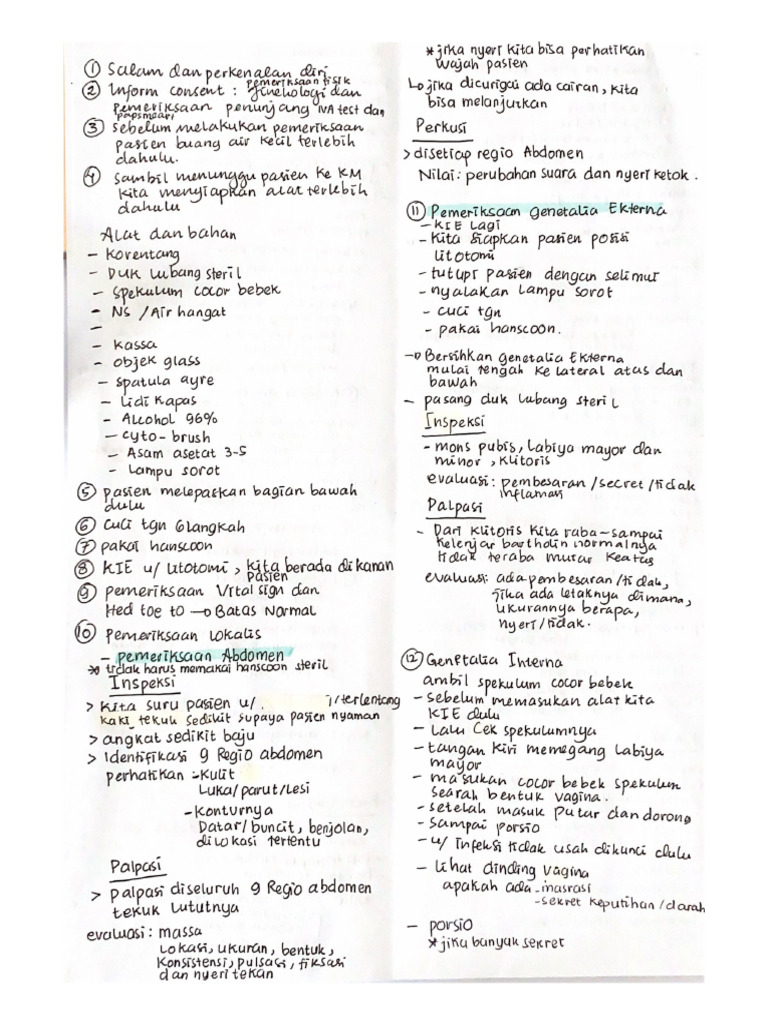 ① Salam dan perkenalan diri
pemeriksaan fisik
② Inform consent : ginekologi dan
pemeriksaan penunjang IVA test dan
papsmear
③ sebelum melakukan pemeriksaan
pasien buang air kecil terlebih
dahulu.
④ Sambil menunggu pasien ke KM
kita menyiapkan alat terlebih
dahulu
Alat dan bahan
- Korentang
- Duk lubang steril
- Spekulum cocor bebek
- NS / Air hangat
-
- kassa
- objek glass
- spatula ayre
- Lidi kapas
- Alcohol 96%
- cyto-brush
- Asam asetat 3-5
- Lampu sorot
⑤ pasien melepaskan bagian bawah
dulu
⑥ cuci tgn 6langkah
⑦ pakai hanscoon
⑧ KIE u/ litotomi, kita berada di kanan
pasien
⑨ pemeriksaan Vital sign dan
Hed toe to → Batas Normal
⑩ Pemeriksaan Lokalis
- pemeriksaan Abdomen
* tidak harus memakai hanscoon steril
Inspeksi
> kita suru pasien u/. /terlentang
kaki tekuk sedikit supaya pasien nyaman
> angkat sedikit baju
> Identifikasi 9 Regio abdomen
perhatikan - Kulit
Luka/parut/Lesi
- Konturnya
Datar/buncit, benjolan,
di lokasi tertentu
Palpasi
> palpasi diseluruh 9 Regio abdomen
tekuk lututnya
evaluasi: massa
Lokasi, ukuran, bentuk,
Konsistensi, pulsasi, fiksasi
dan nyeri tekan
* jika nyeri kita bisa perhatikan
wajah pasien
↳ jika dicurigai ada cairan, kita
bisa melanjutkan
Perkusi
> disetiap regio Abdomen
Nilai: perubahan suara dan nyeri ketok.
⑪ Pemeriksaan genetalia Ekterna
- KIE lagi
- Kita siapkan pasien posisi
litotomi
- tutupi pasien dengan selimut
- nyalakan lampu sorot
- cuci tgn
- pakai hanscoon.
→ Bersihkan genetalia Ekterna
mulai tengah ke lateral atas dan
bawah
- pasang duk lubang steril
Inspeksi
- mons pubis, labiya mayor dan
minor, klitoris
evaluasi: pembesaran/secret/tidak
inflamasi
Palpasi
- Dari klitoris kita raba-sampai
kelenjar bartholin normalnya
tidak teraba mutar keatas
evaluasi: ada pembesaran/tidak,
jika ada letaknya dimana,
ukurannya berapa,
nyeri/tidak.
⑫ Genetalia Interna
ambil spekulum cocor bebek
- sebelum memasukan alat kita
KIE dulu
- Lalu cek spekulumnya
- tangan kiri memegang labiya
mayor
- masukan cocor bebek spekulum
searah bentuk vagina.
- setelah masuk putar dan dorong
- sampai porsio
- u/ infeksi tidak usah dikunci dulu
- Lihat dinding vagina
apakah ada - masrasi
- sekret keputihan/darah
- porsio
* jika banyak sekret